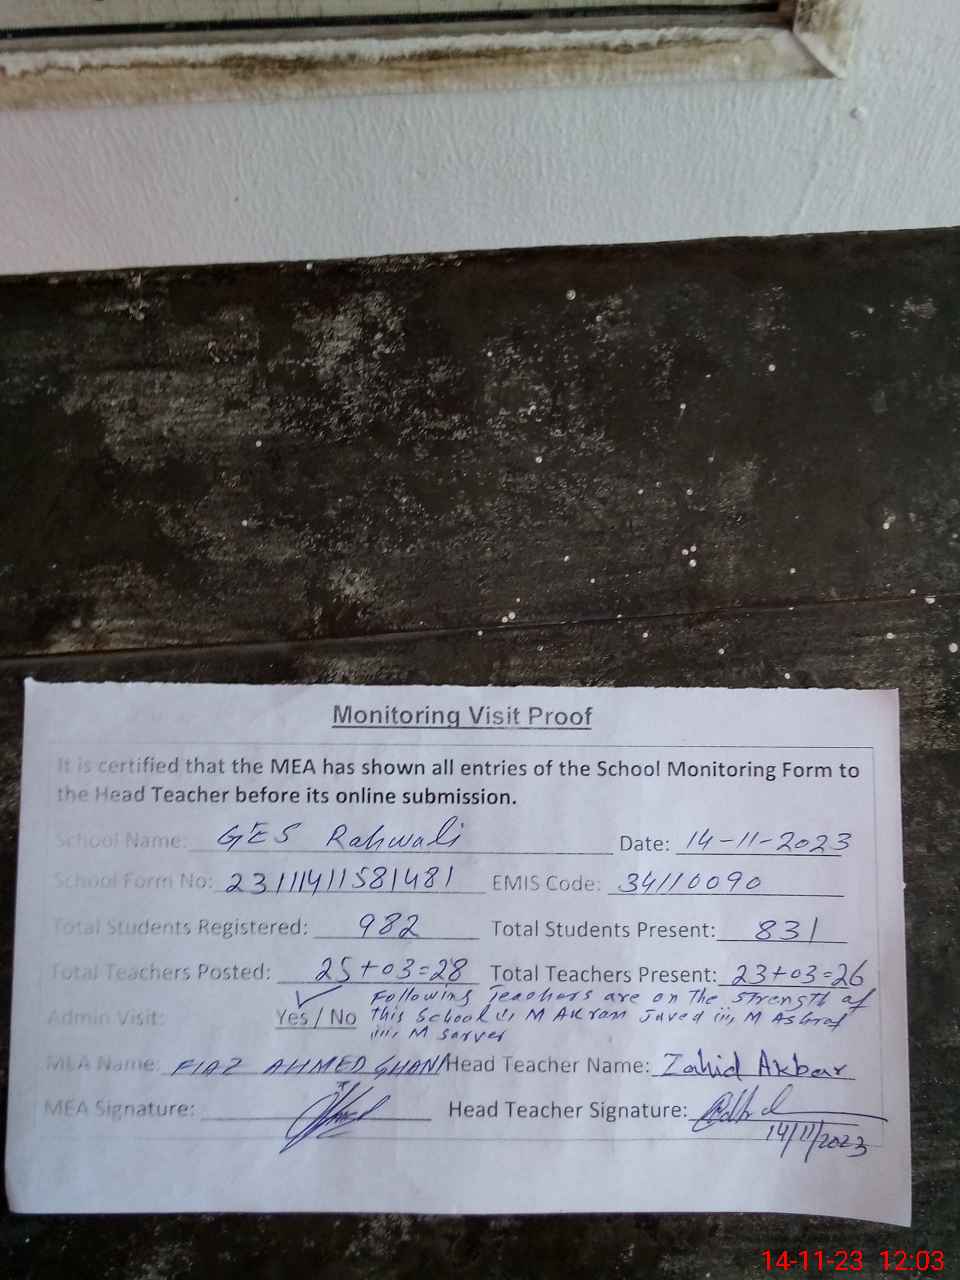 Monitoring Visit Proof
It is certified that the MEA has shown all entries of the School Monitoring Form to
the Head Teacher before its online submission.
School Name: GES Rahwali Date: 14-11-2023
School Form No: 23111411581481 EMIS Code: 34110090
Total Students Registered: 982 Total Students Present: 831
Total Teachers Posted: 25+03=28 Total Teachers Present: 23+03=26
Following Teachers are on The strength of
Admin Visit: Yes / No This School i, M Akram Javed ii, M Ashraf
iii, M Sarver
MEA Name: FIAZ AHMED GHANI Head Teacher Name: Zahid Akbar
MEA Signature: Head Teacher Signature:
14/11/2023
14-11-23 12:03